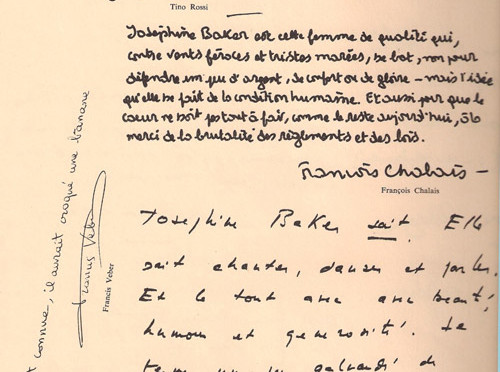 Tino Rossi
Joséphine Baker est cette femme de qualité qui,
contre vents féroces et tristes marées, se bat, non pour
défendre un peu d'argent, de confort ou de gloire – mais l'idée
qu'elle se fait de la condition humaine. Et aussi pour que le
cœur ne soit pas tout à fait, comme le reste aujourd'hui, à la
merci de la brutalité des règlements et des lois.
François Chalais
François Chalais
Joséphine Baker sait. Elle
sait chanter, danser et parler.
Et le tout avec avec beauté,
humour et générosité. Le
de
connue, il aurait croqué une banane
Francis Veber
Francis Veber